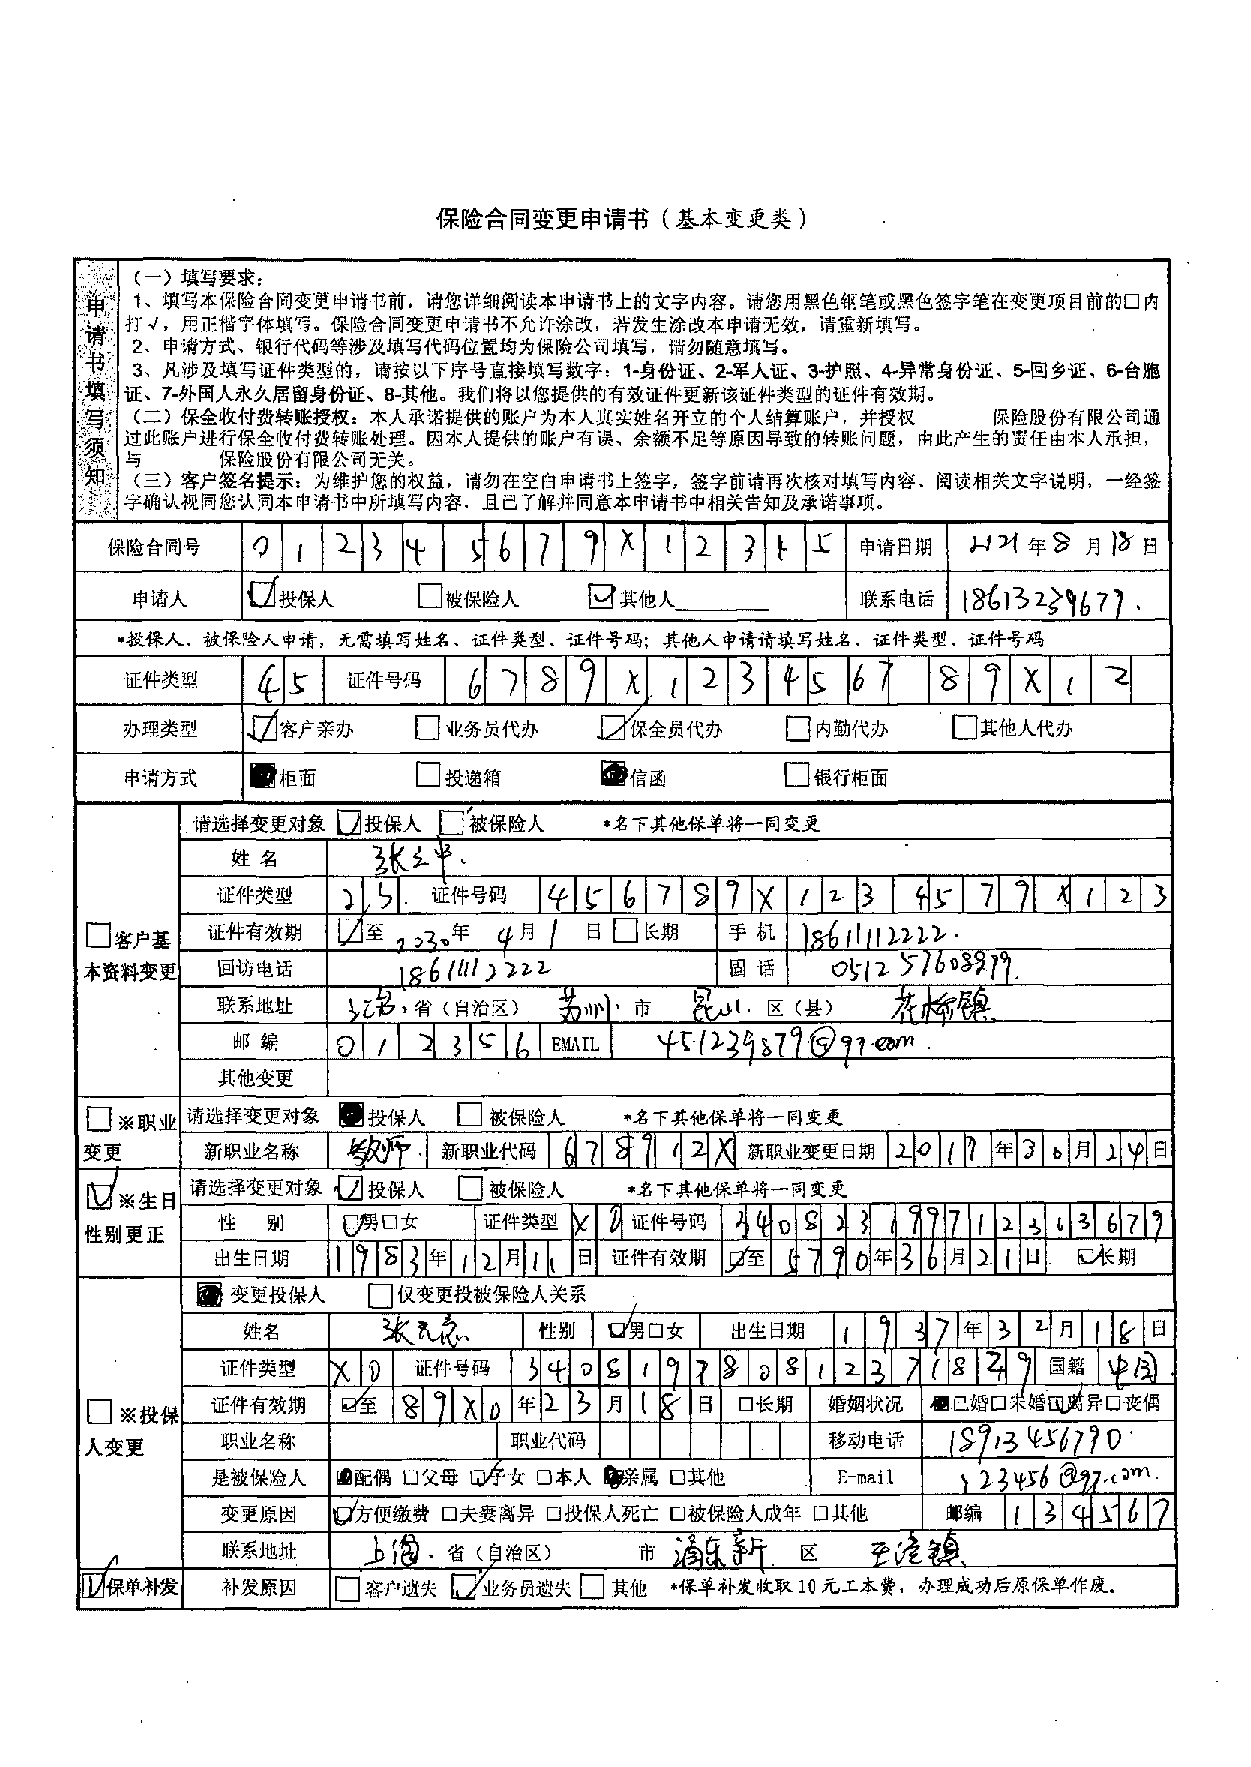 保险合同变更申请书（基本变更类）
申请书填写须知
（一）填写要求：
1、填写本保险合同变更申请书前，请您详细阅读本申请书上的文字内容。请您用黑色钢笔或黑色签字笔在变更项目前的□内
打√，用正楷字体填写。保险合同变更申请书不允许涂改，若发生涂改本申请无效，请重新填写。
2、申请方式、银行代码等涉及填写代码位置均为保险公司填写，请勿随意填写。
3、凡涉及填写证件类型的，请按以下序号直接填写数字：1-身份证、2-军人证、3-护照、4-异常身份证、5-回乡证、6-台胞
证、7-外国人永久居留身份证、8-其他。我们将以您提供的有效证件更新该证件类型的证件有效期。
（二）保全收付费转账授权：本人承诺提供的账户为本人真实姓名开立的个人结算账户，并授权 保险股份有限公司通
过此账户进行保全收付费转账处理。因本人提供的账户有误、余额不足等原因导致的转账问题，由此产生的责任由本人承担，
与 保险股份有限公司无关。
（三）客户签名提示：为维护您的权益，请勿在空白申请书上签字，签字前请再次核对填写内容、阅读相关文字说明，一经签
字确认视同您认同本申请书中所填写内容，且已了解并同意本申请书中相关告知及承诺事项。
保险合同号 0 1 2 3 4 5 6 7 9 X 1 2 3 5 申请日期 年 8 月 18 日
申请人 ☑投保人 □被保险人 ☑其他人______ 联系电话 18613239677.
*投保人、被保险人申请，无需填写姓名、证件类型、证件号码；其他人申请请填写姓名、证件类型、证件号码
证件类型 4 5 证件号码 6 7 8 9 X 1 2 3 4 5 6 7 8 9 X 1 2
办理类型 ☑客户亲办 □业务员代办 ☑保全员代办 □内勤代办 □其他人代办
申请方式 ■柜面 □投递箱 ■信函 □银行柜面
□客户基本资料变更
请选择变更对象 ☑投保人 □被保险人 *名下其他保单将一同变更
姓名 张立中
证件类型 2 3 证件号码 4 5 6 7 8 9 X 1 2 3 4 5 7 9 X 1 2 3
证件有效期 ☑至 2030 年 4 月 1 日 □长期 手机 18611112222.
回访电话 18611112222 固话 0512 57608879.
联系地址 江苏 省（自治区） 苏州 市 昆山 区（县） 花桥镇
邮编 0 1 2 3 5 6 EMAIL 451239879@qq.com.
其他变更
□※职业变更
请选择变更对象 ■投保人 □被保险人 *名下其他保单将一同变更
新职业名称 教师 新职业代码 6 7 8 9 1 2 X 新职业变更日期 2 0 1 9 年 3 0 月 2 4 日
☑※生日性别更正
请选择变更对象 ☑投保人 □被保险人 *名下其他保单将一同变更
性别 ☑男□女 证件类型 X 证件号码 3 4 0 8 2 3 1 9 9 7 1 2 3 0 3 6 7 9
出生日期 1 9 8 3 年 1 2 月 1 1 日 证件有效期 ☑至 5 7 9 0 年 3 6 月 2 1 日 ☑长期
□※投保人变更
■变更投保人 □仅变更投被保险人关系
姓名 张 性别 ☑男□女 出生日期 1 9 3 7 年 3 2 月 1 8 日
证件类型 X 0 证件号码 3 4 0 8 1 9 7 8 0 8 1 2 3 7 1 8 2 9 国籍 中国
证件有效期 ☑至 8 9 X 0 年 2 3 月 1 8 日 □长期 婚姻状况 ■已婚□未婚☑离异□丧偶
职业名称 职业代码 移动电话 18913456790
是被保险人 ■配偶 □父母 ☑子女 □本人 ■亲属 □其他 E-mail 123456@qq.com.
变更原因 ☑方便缴费 □夫妻离异 □投保人死亡 □被保险人成年 □其他 邮编 1 3 4 5 6 7
联系地址 上海 省（自治区） 市 浦东新 区 镇
☑保单补发 补发原因 □客户遗失 ☑业务员遗失 □其他 *保单补发收取10元工本费，办理成功后原保单作废。